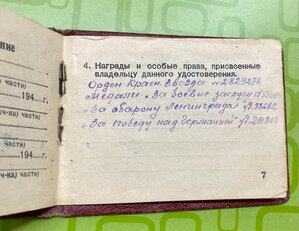 ение
ч-ка) части)
194 г.
ч-ка) части)
194 г.
ч-ка) части)
4. Награды и особые права, присвоенные
владельцу данного удостоверения.
Орден Красн. Звезда № 2829278
Медали: „За боевые заслуги
„За оборону Ленинграда" уд. 33282
„За победу над Германией" уд. 291808
7